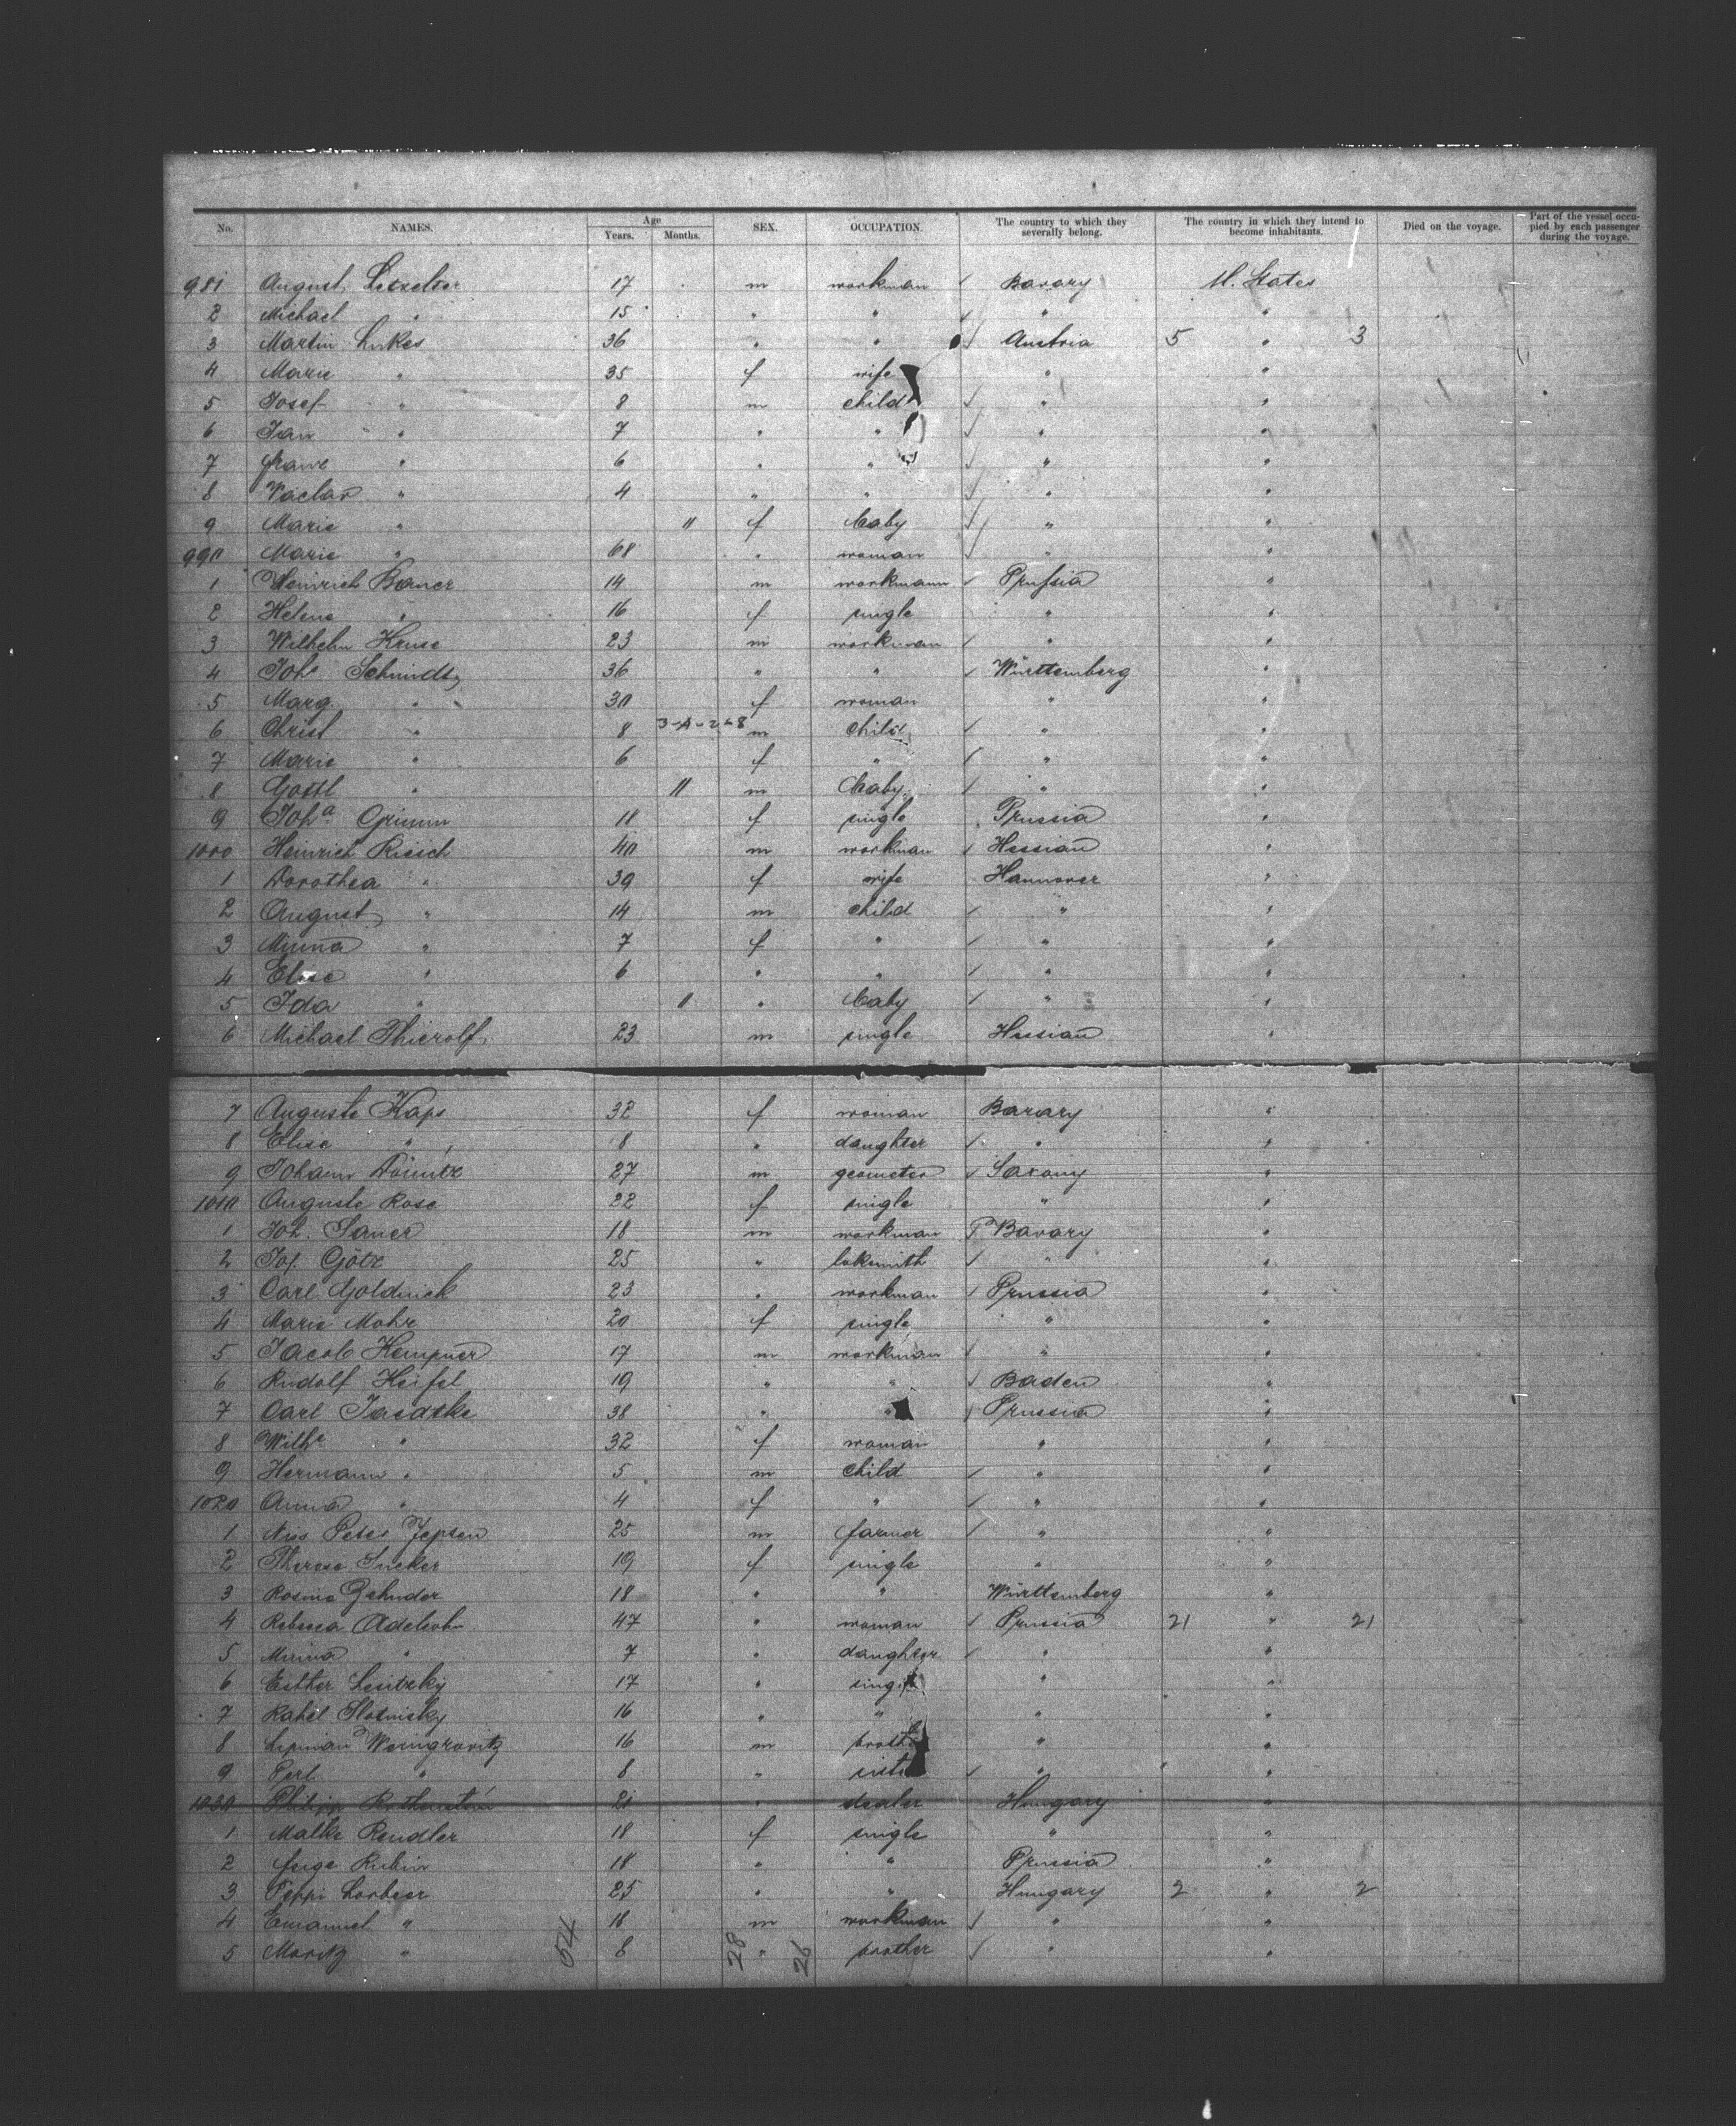 No. NAMES. Age Years. Months. SEX. OCCUPATION. The country to which they severally belong. The country in which they intend to become inhabitants. Died on the voyage. Part of the vessel occupied by each passenger during the voyage.
981 August 17 m workman Bavary U. States
2 Michael " 15 " " " "
3 Martin Lukes 36 " " Austria 5 " 3
4 Marie " 35 f wife " "
5 Josef " 8 m child " "
6 Jan " 7 " " " "
7 " 6 " " " "
8 Vaclav " 4 " " " "
9 Marie " 11 f baby " "
990 Marie " 68 " woman " "
1 Heinrich Bauer 14 m workmann Prussia "
2 Helene " 16 f single " "
3 Wilhelm Kruse 23 m workman " "
4 Johs Schmidt 36 " " Württemberg "
5 Marg. " 30 f woman " "
6 Christ " 8 m child " "
7 Marie " 6 f " " "
8 Gottl " 11 m baby " "
9 Joha Grimm 18 f single Prussia "
1000 Heinrich Riesch 40 m workman Hessian "
1 Dorothea " 39 f wife Hannover "
2 August " 14 m child " "
3 Minna " 7 f " " "
4 Elise " 6 " " " "
5 Ida " 11 " baby " "
6 Michael Thierolf 23 m single Hessian "
7 Auguste Kaps 32 f woman Bavary "
8 Elise " 8 " daughter " "
9 Johann Döintz 27 m geometer Saxony "
1010 Auguste Rose 22 f single " "
1 Joh. Sauer 18 m workman Bavary "
2 Jos. Götz 25 " loksmith " "
3 Carl Goldnick 23 " workman Prussia "
4 Marie Mohr 20 f single " "
5 Jacob Kempner 17 m workman " "
6 Rudolf Heifel 19 " " Baden "
7 Carl Jaedtke 38 " " Prussia "
8 Wilhe " 32 f woman " "
9 Hermann " 5 m child " "
1020 Anna " 4 f " " "
1 Nis Peter Jepsen 25 m farmer " "
2 Therese Sucker 19 f single " "
3 Rosine Zehnder 18 " " Württemberg "
4 Rebecca Adelsohn 47 " woman Prussia 21 " 21
5 Minna " 7 " daughter " "
6 Esther Lesitzky 17 " single " "
7 Rahel Slotnisky 16 " " " "
8 Lipman Weingrovitz 16 m broth " "
9 Perl " 8 " siste " "
1030 Philipp Rothenstein 21 " dealer Hungary "
1 Malke Rendler 18 f single " "
2 Feige Rubin 18 " " Prussia "
3 Peppi Lorbeer 25 " " Hungary 2 " 2
4 Emanuel " 18 m workman " "
5 Moritz " 54 8 28 " 26 brother " "